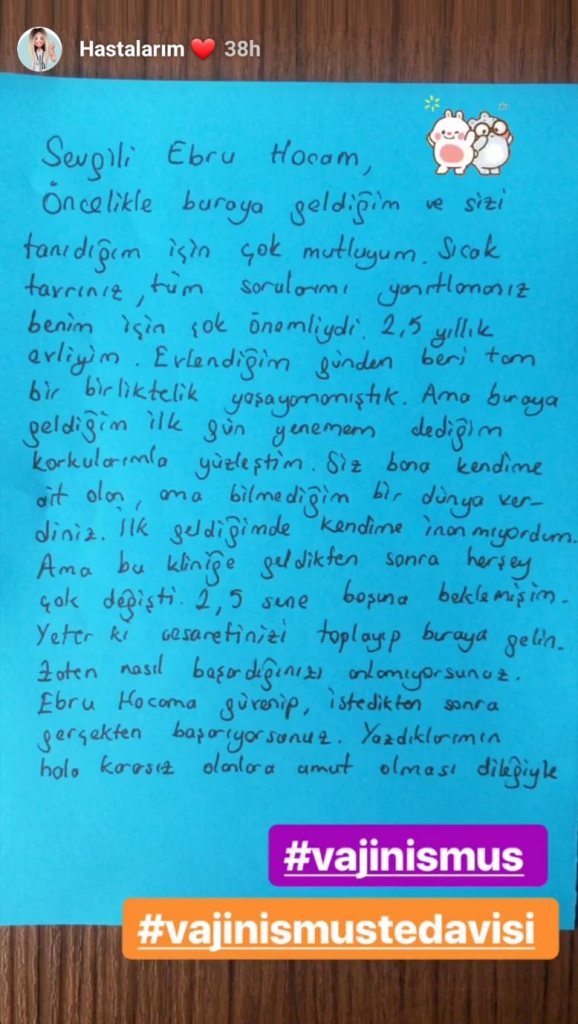 Hastalarım ❤️ 38h
Sevgili Ebru Hocam,
Öncelikle buraya geldiğim ve sizi
tanıdığım için çok mutluyum. Sıcak
tavrınız, tüm sorularımı yanıtlamanız
benim için çok önemliydi. 2,5 yıllık
evliyim. Evlendiğim günden beri tam
bir birliktelik yaşayamamıştık. Ama buraya
geldiğim ilk gün yenemem dediğim
korkularımla yüzleştim. Siz bana kendime
ait olan, ama bilmediğim bir dünya ver-
diniz. İlk geldiğimde kendime inanmıyordum.
Ama bu kliniğe geldikten sonra herşey
çok değişti. 2,5 sene boşuna beklemişim.
Yeter ki cesaretinizi toplayıp buraya gelin.
Zaten nasıl başardığınızı anlamıyorsunuz.
Ebru Hocama güvenip, istedikten sonra
gerçekten başarıyorsunuz. Yazdıklarımın
hala kararsız olanlara umut olması dileğiyle
#vajinismus
#vajinismustedavisi